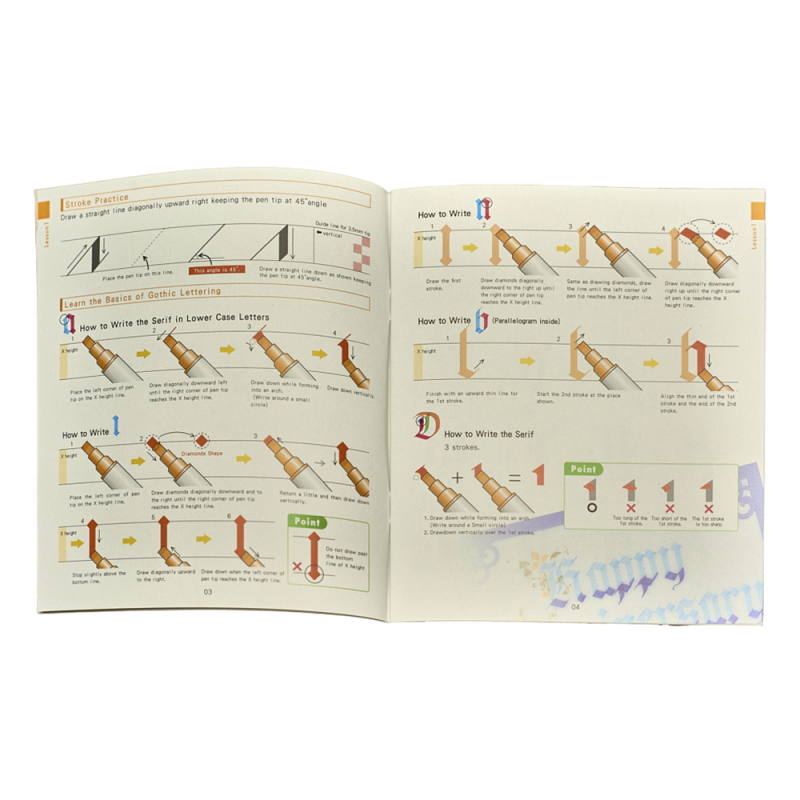 Lesson1
Stroke Practice
Draw a straight line diagonally upward right keeping the pen tip at 45°angle
Place the pen tip on this line.
This angle is 45°.
Draw a straight line down as shown keeping
the pen tip at 45°angle.
Guide line for 3.5mm tip
vertical
Learn the Basics of Gothic Lettering
n How to Write the Serif in Lower Case Letters
X height
1
2
3
4
Place the left corner of pen
tip on the X height line.
Draw diagonally downward left
until the right corner of pen tip
reaches the X height line.
Draw down while forming
into an arch.
(Write around a small
circle)
Draw down vertically.
How to Write i
X height
1
2
3
Diamonds Shape
Place the left corner of pen
tip on the X height line.
Draw diamonds diagonally downward and to
the right until the right corner of pen tip
reaches the X height line.
Return a little and then draw down
vertically.
4
5
6
Stop slightly above the
bottom line.
Draw diagonally upward
to the right.
Draw down when the left corner of
pen tip reaches the X height line.
Point
Do not draw past
the bottom
line of X height
03
Lesson1
How to Write n
X height
1
2
3
4
Draw the first
stroke.
Draw diamonds diagonally
downward to the right up until
the right corner of pen tip
reaches the X height line.
Same as drawing diamonds, draw
the line until the left corner of
pen tip reaches the X height line.
Draw diagonally downward
right up until the right corner
of pen tip reaches the X
height line.
How to Write b (Parallelogram inside)
X height
1
2
3
Finish with an upward thin line for
the 1st stroke.
Start the 2nd stroke at the place
shown.
Align the thin end of the 1st
stroke and the end of the 2nd
stroke.
D How to Write the Serif
3 strokes.
+ =
1. Draw down while forming into an arch.
(Write around a Small circle)
2. Drawdown vertically over the 1st stroke.
Point
Too long of the
1st stroke.
Too short of the
1st stroke.
The 1st stroke
is too sharp
Happy
04